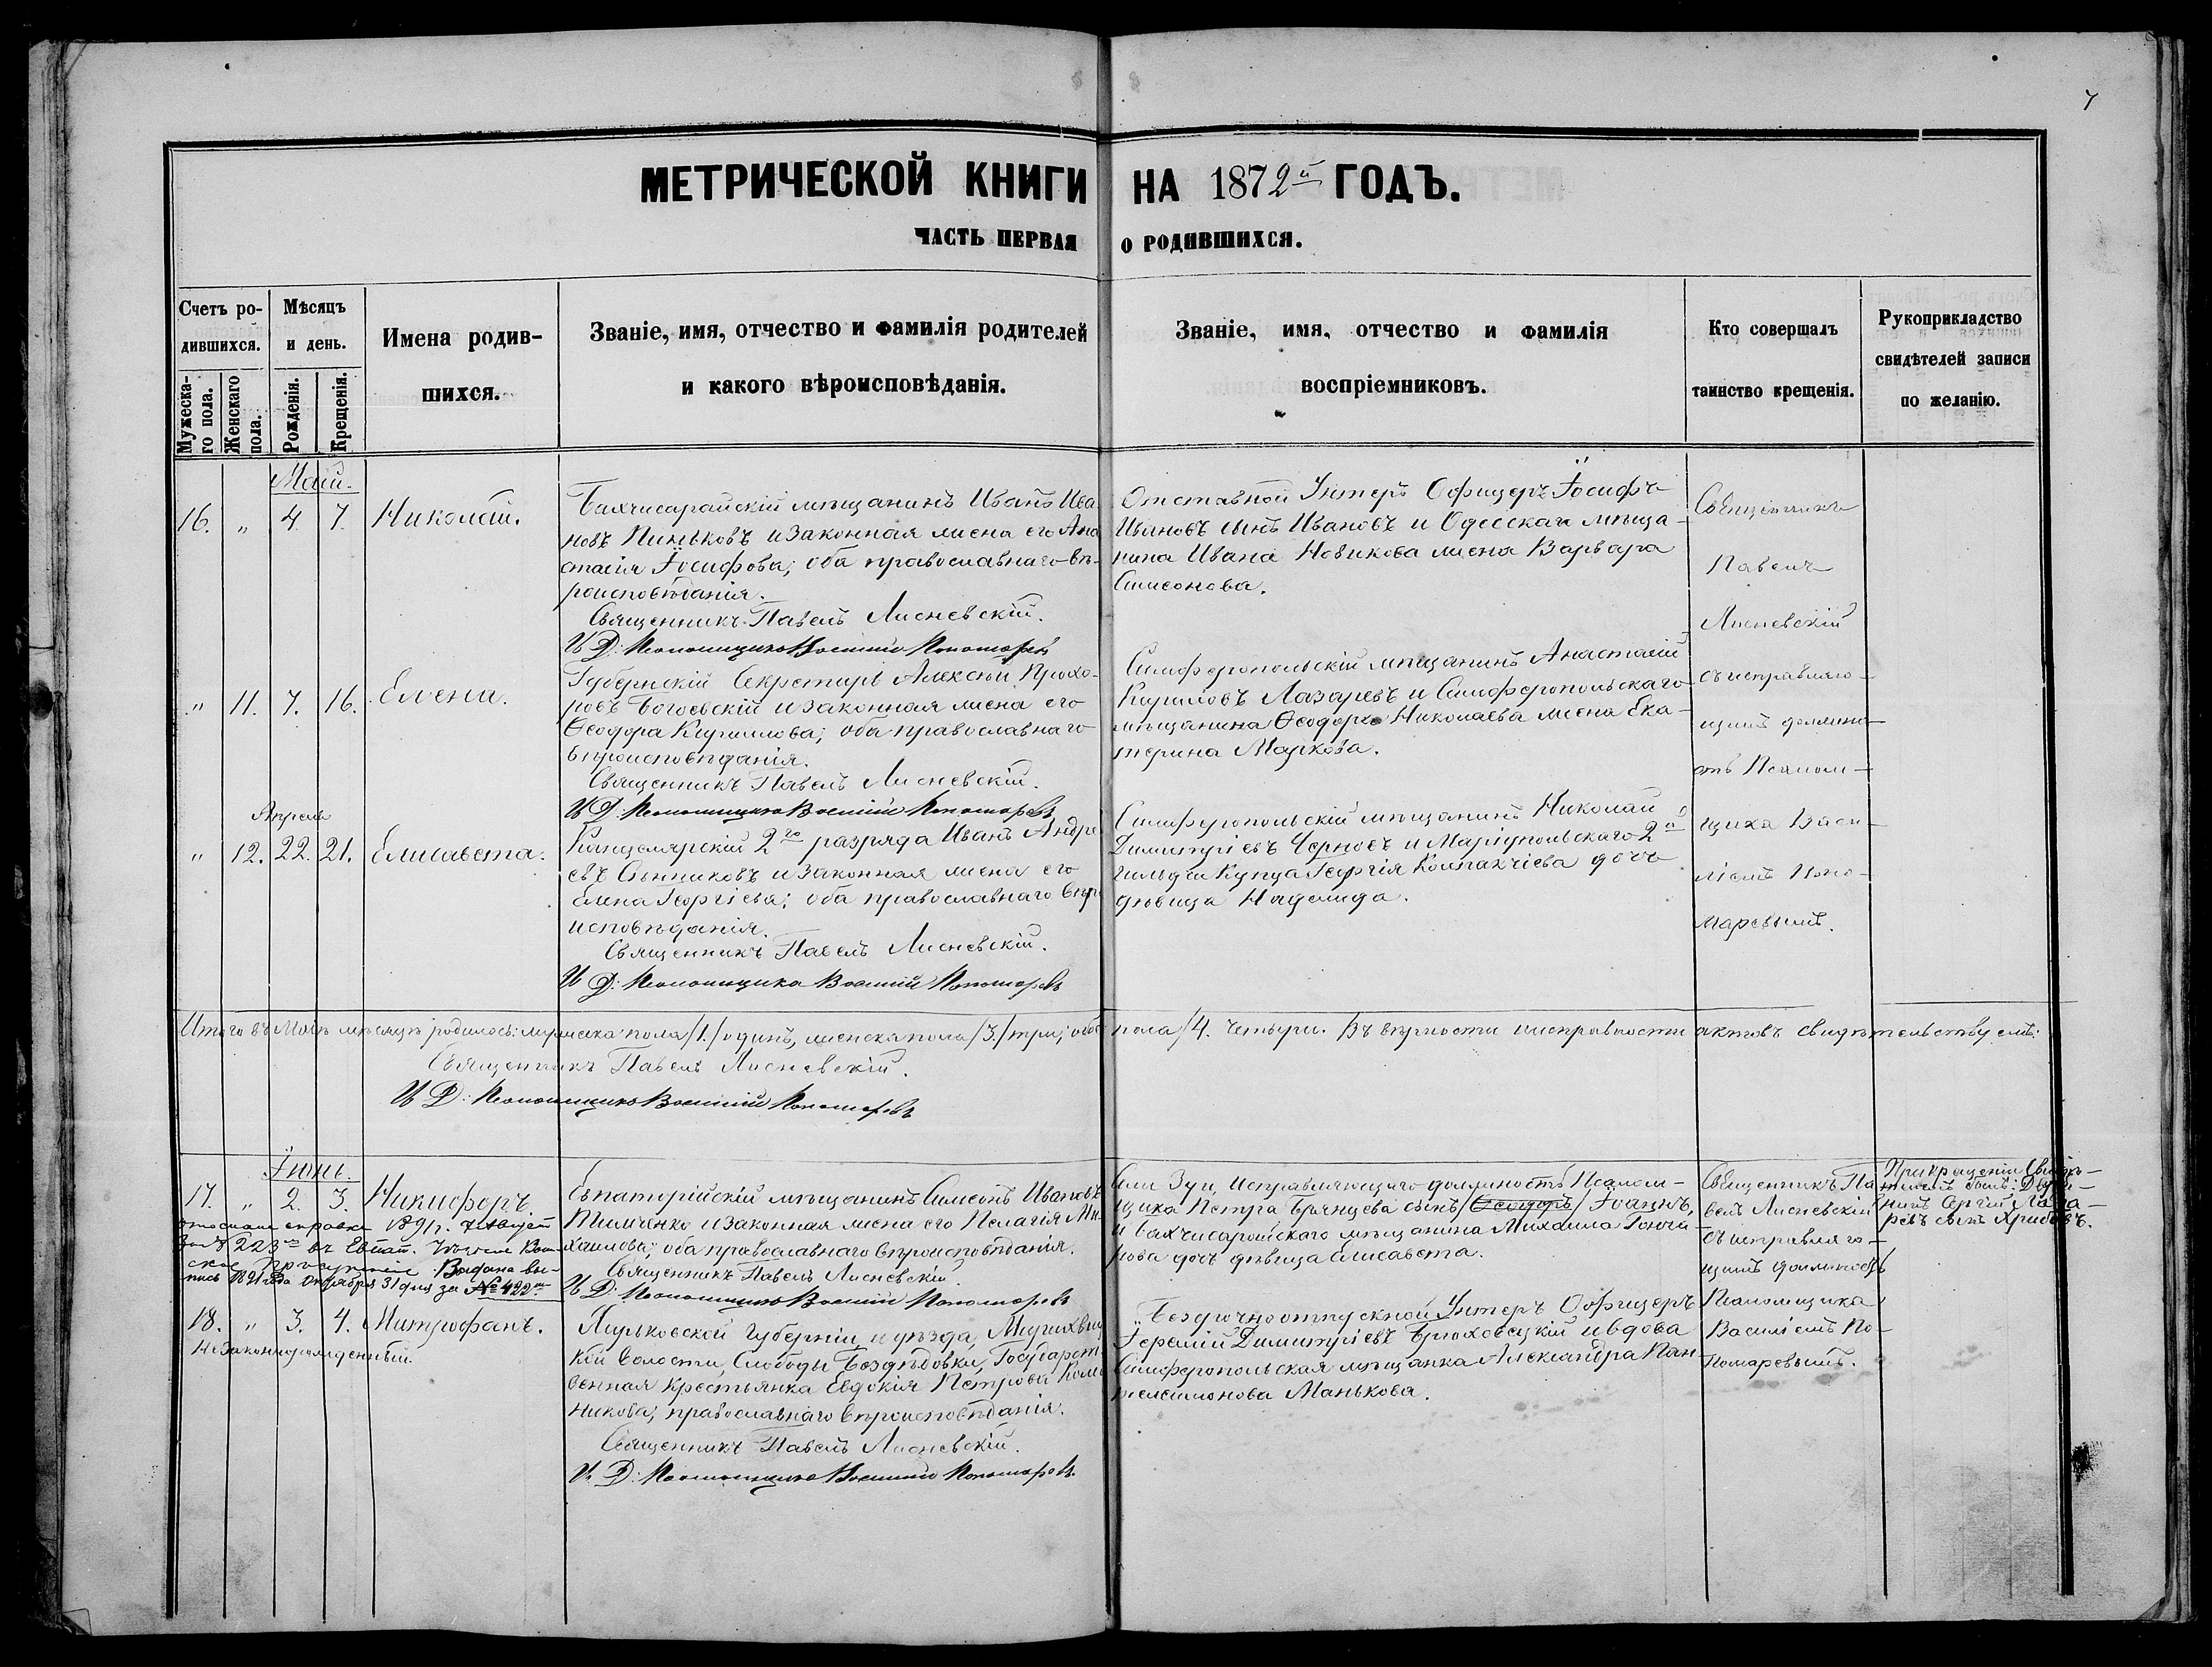 7
МЕТРИЧЕСКОЙ КНИГИ НА 1872й ГОДЪ.
ЧАСТЬ ПЕРВАЯ О РОДИВШИХСЯ.
Счетъ ро-
дившихся.
Мужеска-
го пола.
Женскаго
пола.
Мѣсяцъ
и день.
Рожденія.
Крещенія.
Имена родив-
шихся.
Званіе, имя, отчество и фамилія родителей
и какого вѣроисповѣданія.
Званіе, имя, отчество и фамилія
воспріемниковъ.
Кто совершалъ
таинство крещенія.
Рукоприкладство
свидѣтелей записи
по желанію.
Май.
16. „ 4. 7. Николай.
Бахчисарайскій мѣщанинъ Иванъ Ива
новъ Пиньковъ и законная жена его Ана
стасія Іосифова; оба православнаго вѣ-
роисповѣданія.
Священникъ Павелъ Лисневскій.
И Д: Псаломщика Василій Пономаревъ
Отставной Унтеръ Офицеръ Іосифъ
Ивановъ сынъ Ивановъ и Одесскаго мѣща-
нина Ивана Новикова жена Варвара
Симеонова.
Священникъ
Павелъ
Лисневскій
съ исправляю-
щимъ должно-
сть Псалом-
щика Васи-
ліемъ Поно-
маревымъ.
„ 11. 7. 16. Елена.
Губернскій Секретарь Алексѣй Прохо-
ровъ Богоевскій и законная жена его
Ѳеодора Кириллова; оба православнаго
вѣроисповѣданія.
Священникъ Павелъ Лисневскій.
И Д. Псаломщика Василій Пономаревъ
Симферопольскій мѣщанинъ Анастасій
Кириловъ Лазаревъ и Симферопольскаго
мѣщанина Ѳеодора Николаева жена Ека-
терина Маркова.
Апрель
„ 12. 22. 21. Елисавета.
Канцелярскій 2го разряда Иванъ Андре
евъ Сѣнниковъ и законная жена его
Елена Георгіева; оба православнаго вѣро
исповѣданія.
Священникъ Павелъ Лисневскій.
И Д: Псаломщика Василій Пономаревъ
Симферопольскій мѣщанинъ Николай
Димитріевъ Черновъ и Маріупольскаго 2й
гильдіи Купца Георгія Колпакчіева дочь
дѣвица Надежда.
Итого въ Маѣ мѣсяцѣ родилось: мужеска пола /1./ одинъ, женска пола /3./ три; обое пола /4. четыри. Въ вѣрности и исправности актовъ свидѣтельствуемъ:
Священникъ Павелъ Лисневскій.
И Д: Псаломщика Василій Пономаревъ
Іюнь.
17. „ 2. 3. Никифоръ.
справка 1891 г. Августа
за № 223 въ Евпат.
Присутствіе. Выдана вы-
пись 1891 года Октября 31 дня за № 422
Евпаторійскій мѣщанинъ Симеонъ Ивановъ
Тимченко и законная жена его Пелагія Ми-
хаилова; оба православнаго вѣроисповѣданія.
Священникъ Павелъ Лисневскій.
И Д: Псаломщика Василій Пономаревъ
Села Зуи, исправляющаго должность Псалом-
щика Петра Брянцева сынъ /Ѳеодоръ/ Іоаннъ,
и Бахчисарайскаго мѣщанина Михаила Гонча-
рова дочь дѣвица Елисавета.
Священникъ Па
велъ Лисневскій
съ исправляю-
щимъ должность
Псаломщика
Василіемъ По-
номаревымъ.
При крещеніи Свидѣ-
телемъ былъ: Дворя-
нинъ Сергій Лаза-
ревъ сынъ Христовъ.
18. „ 3. 4. Митрофанъ.
Незаконнорожденный.
Харьковской Губерніи, и уѣзда,
кой волости, Слободы Бездѣдовки, Государст-
венная крестьянка Евдокія Петрова
никова; православнаго вѣроисповѣданія.
Священникъ Павелъ Лисневскій.
И Д: Псаломщика Василій Пономаревъ.
Безсрочноотпускной Унтеръ Офицеръ
Іеремій Димитріевъ Брюховецкій и вдова
Симферопольская мѣщанка Александра Пан-
телеймонова Манькова.